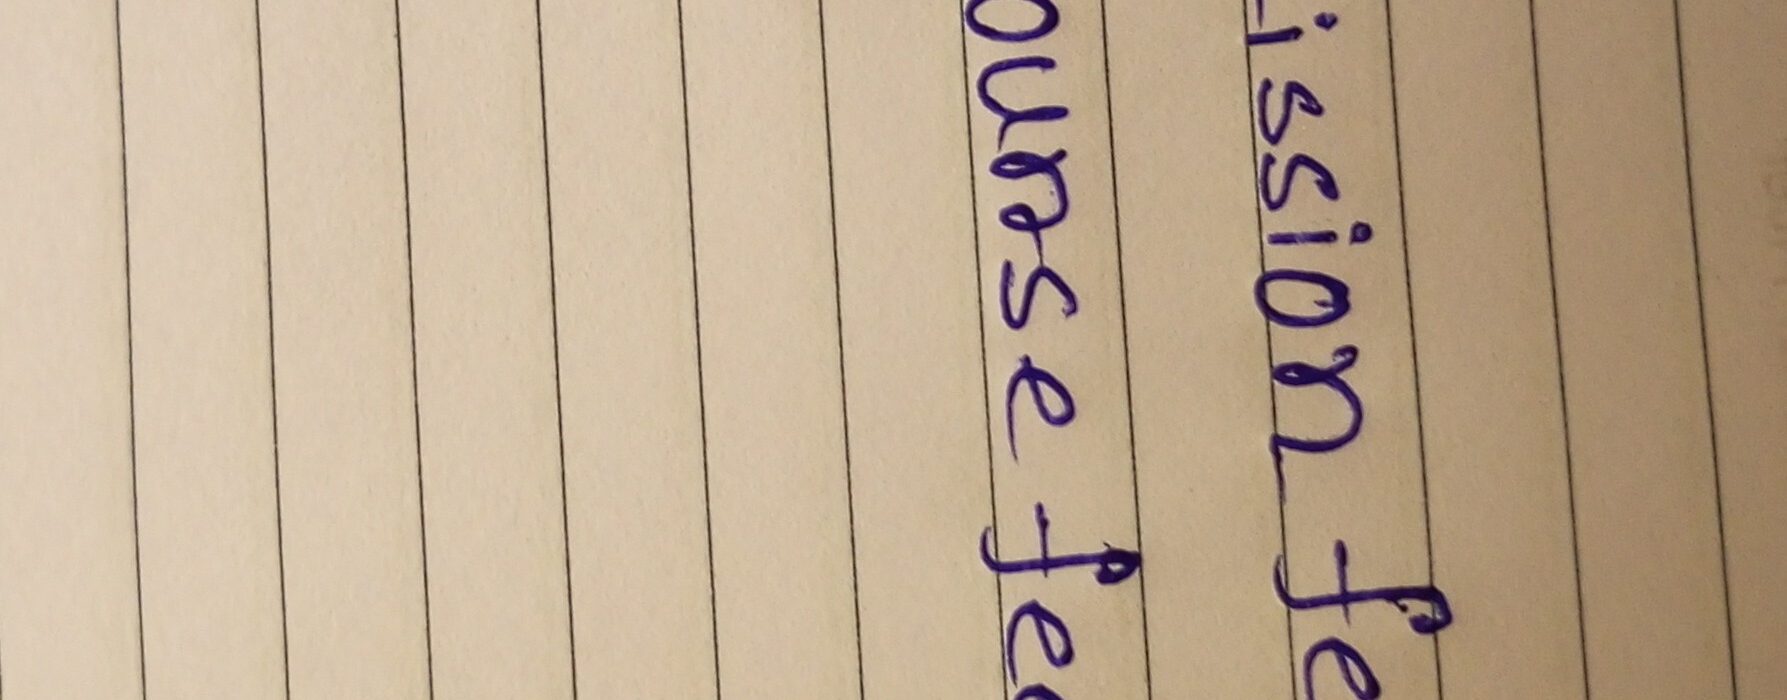 ission fe
ourse fee